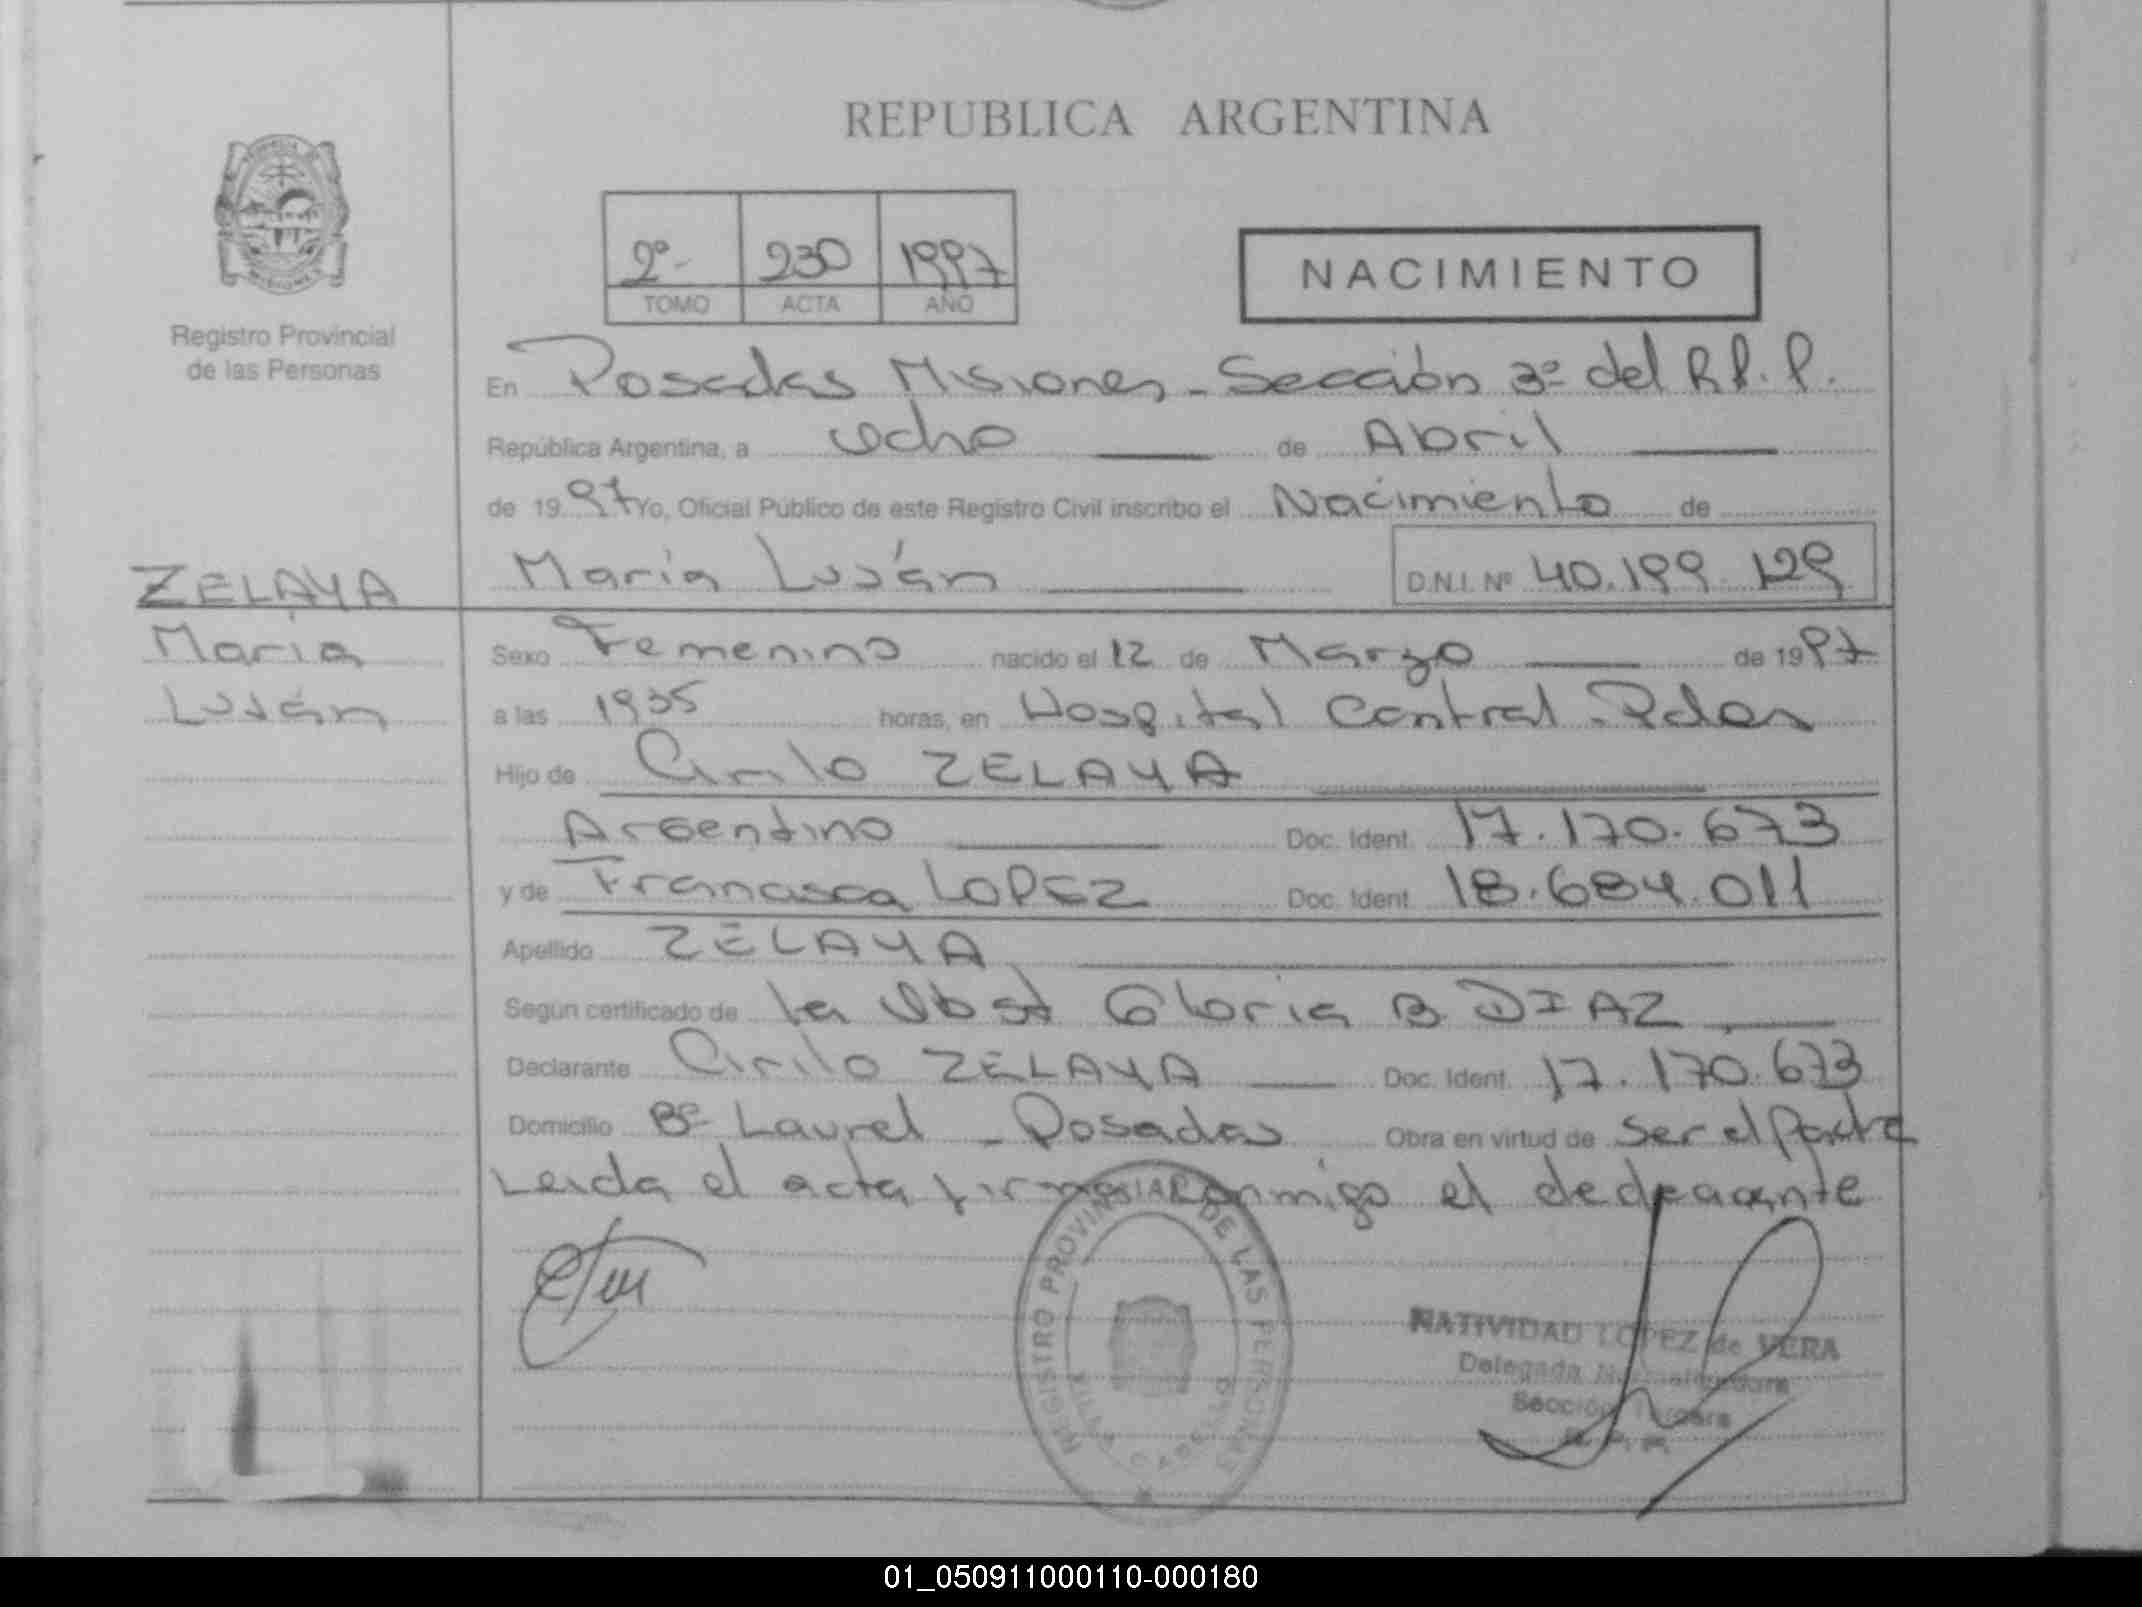 REPUBLICA ARGENTINA
Registro Provincial
de las Personas
2º- 230 1997
TOMO ACTA AÑO
NACIMIENTO
En Posadas Misiones - Sección 3º del R.P.P.
República Argentina, a ocho de Abril
de 1997 Yo, Oficial Público de este Registro Civil inscribo el Nacimiento de
María Luján D.N.I. Nº 40.199.129
ZELAYA
María
Luján
Sexo Femenino nacido el 12 de Marzo de 1997
a las 1935 horas, en Hospital Central - Pdas
Hijo de Cirilo ZELAYA
Argentino Doc. Ident. 17.170.673
y de Francisca LOPEZ Doc. Ident. 18.684.011
Apellido ZELAYA
Según certificado de la Obst Gloria B DIAZ
Declarante Cirilo ZELAYA Doc. Ident. 17.170.673
Domicilio Bº Laurel - Posadas Obra en virtud de ser el Padre
Leida el acta firma conmigo el declarante
REGISTRO PROVINCIAL DE LAS PERSONAS
NATIVIDAD LOPEZ de VERA
Delegada
Sección Tercera
R. P. P.
01_050911000110-000180